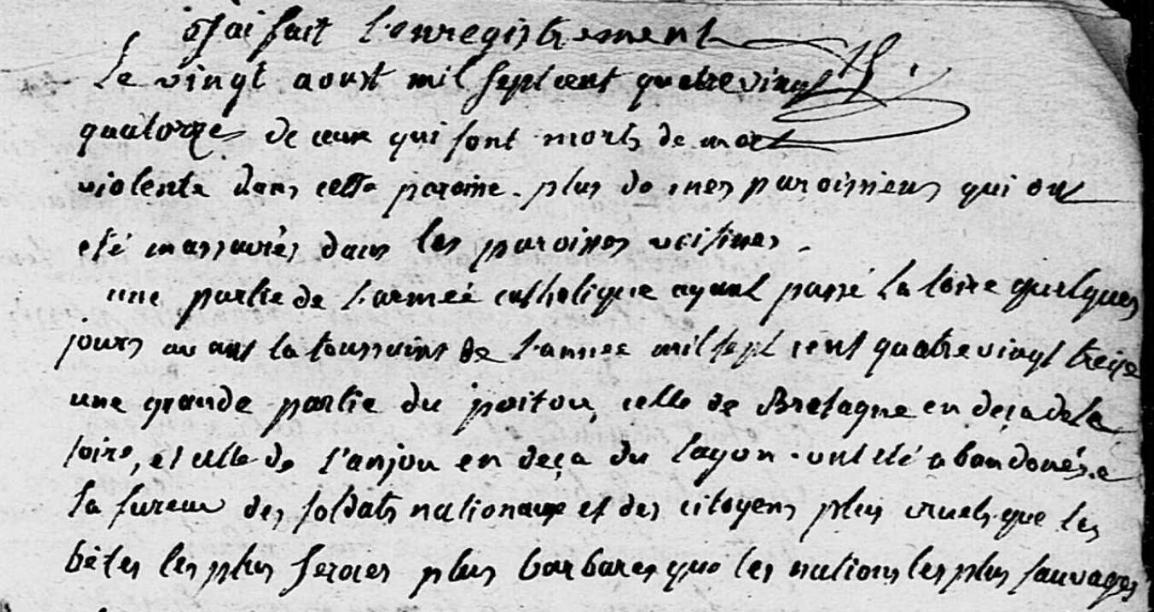 j'ai fait l'enregistrement
Le vingt aoust mil sept cent quatre vingt
quatorze de ceux qui sont morts de mort
violente dans cette paroisse. plus de mes paroissiens qui ont
eté massacrés dans les paroisses voisines.
une partie de l'armeé catholique ayant passé la loire quelques
jours avant la toussaint de l'annee mil sept cent quatre vingt treize
une grande partie du poitou, celle de Bretagne en deça de la
loire, et celle de l'anjou en deça du layon. ont eté abandoneés a
la fureur des soldats nationaux et des citoyens plus cruels que les
bêtes les plus feroces plus barbares que les nations les plus sauvages